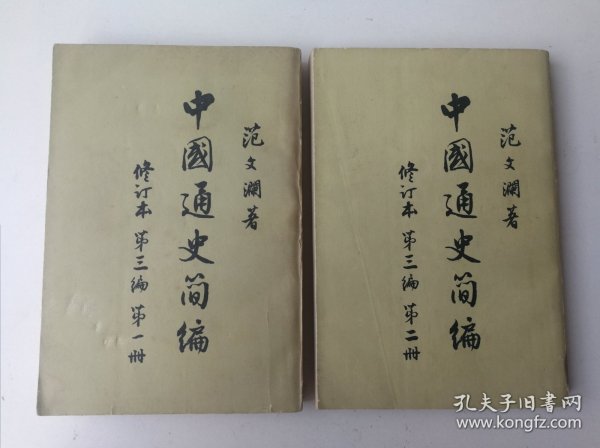 范文瀾著
中國通史简编
修订本 第三编 第一册
范文瀾著
中國通史简编
修订本 第三编 第二册
孔夫子旧书网
www.kongfz.com